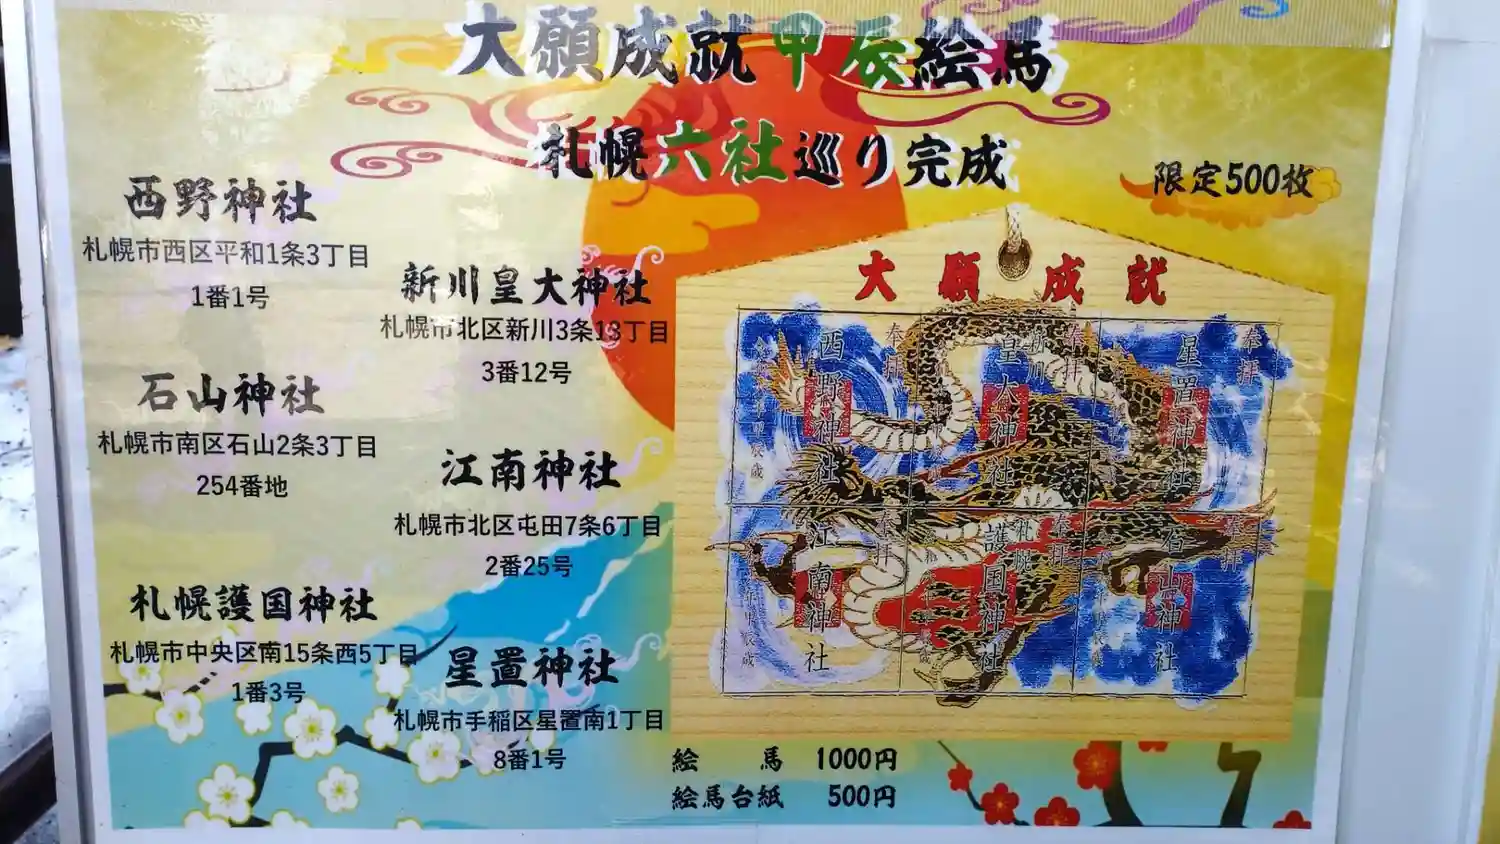 大願成就甲辰絵馬
札幌六社巡り完成
限定500枚
西野神社
札幌市西区平和1条3丁目
1番1号
新川皇大神社
札幌市北区新川3条13丁目
3番12号
石山神社
札幌市南区石山2条3丁目
254番地
江南神社
札幌市北区屯田7条6丁目
2番25号
札幌護国神社
札幌市中央区南15条西5丁目
1番3号
星置神社
札幌市手稲区星置南1丁目
8番1号
大願成就
奉拝
西野神社
奉拝
新川
皇大神社
奉拝
星置神社
奉拝
江南神社
奉拝
札幌
護国神社
奉拝
石山神社
絵馬 1000円
絵馬台紙 500円